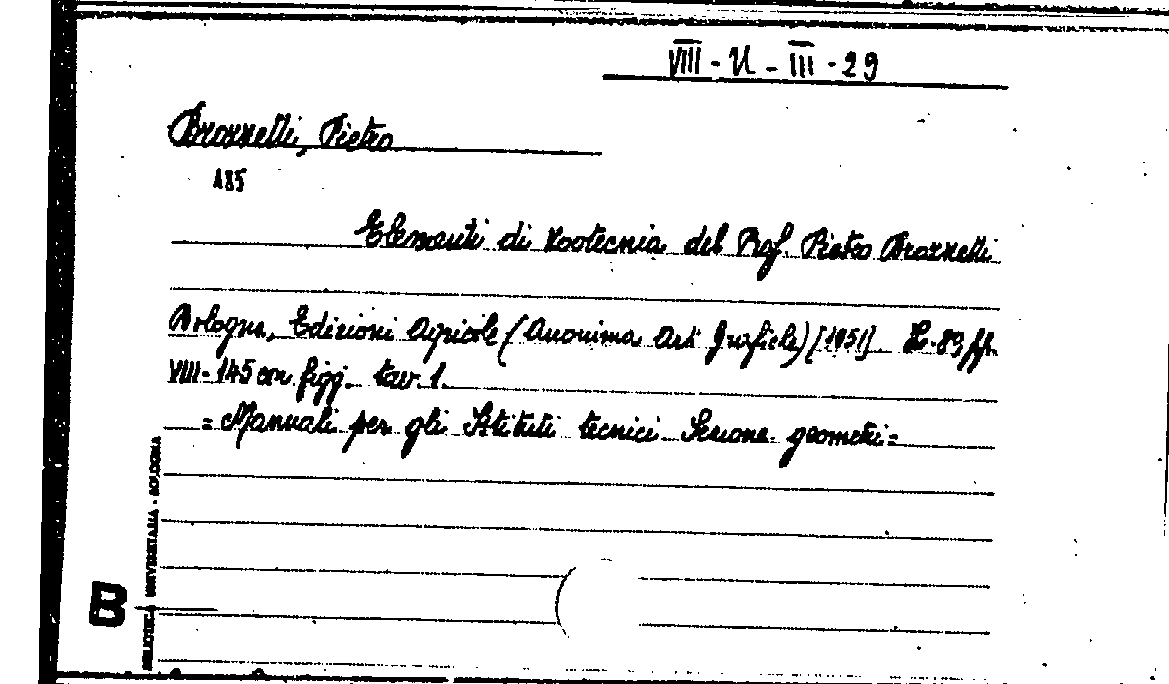 VIII - U - III - 29
Brozzelli, Pietro
A85
Elementi di Zootecnia del Prof. Pietro Brozzelli
Bologna, Edizioni Agricole (Anonima Arti Grafiche) [1951] 8º pp.
VIII-145 con figg. tav. 1.
= Manuali per gli Istituti tecnici Sezione geometri =
BIBLIOTECA UNIVERSITARIA - BOLOGNA
B